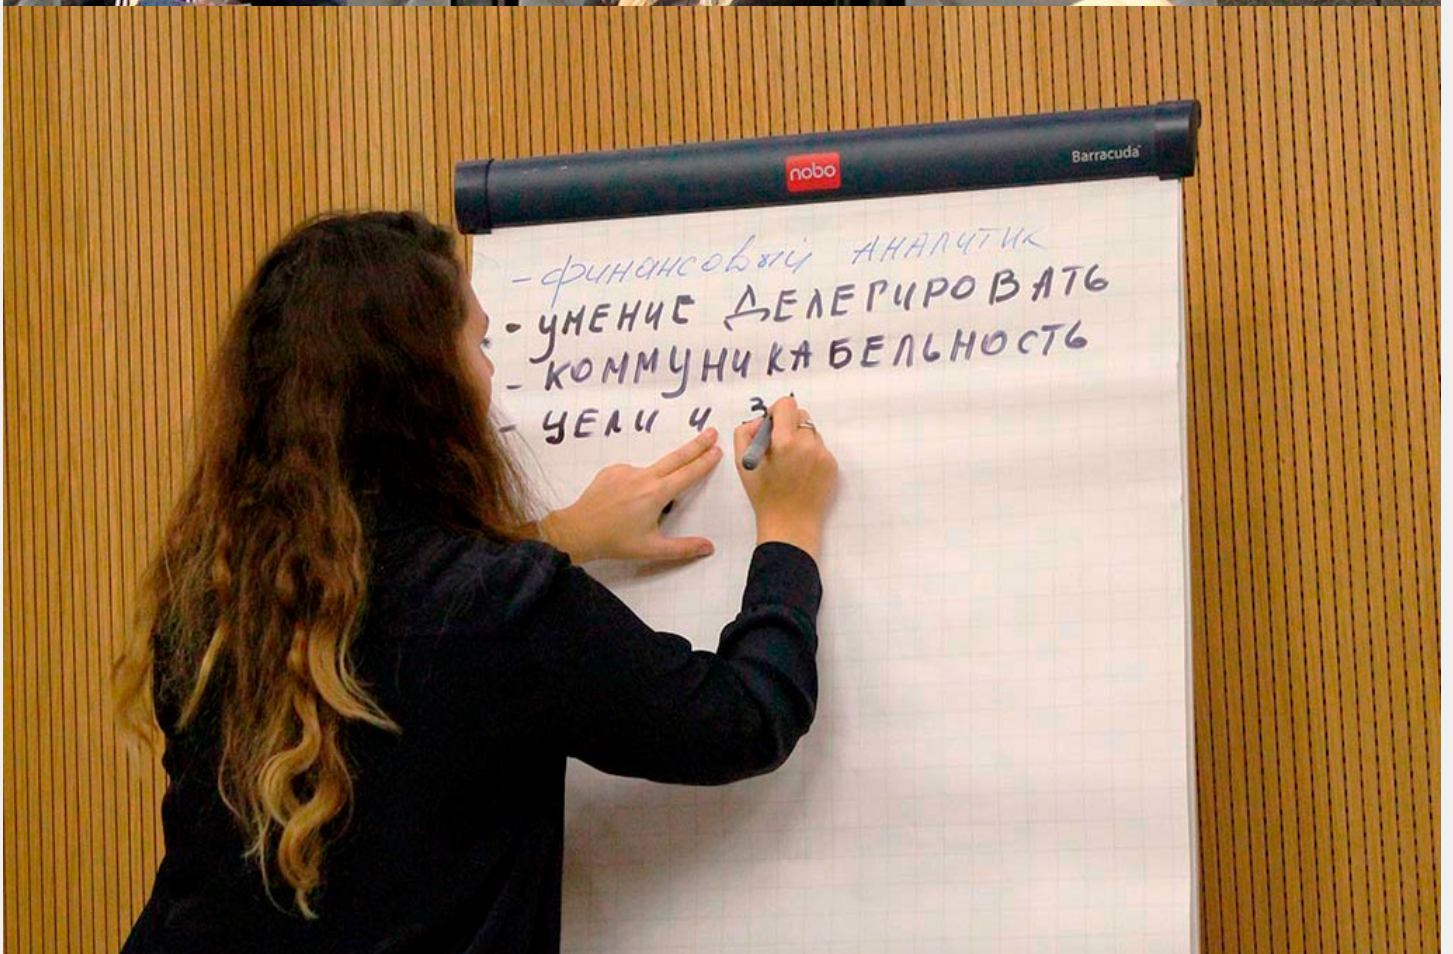 nobo
Barracuda
- финансовый аналитик
- УМЕНИЕ ДЕЛЕГИРОВАТЬ
- КОММУНИКАБЕЛЬНОСТЬ
- ЦЕЛИ И З